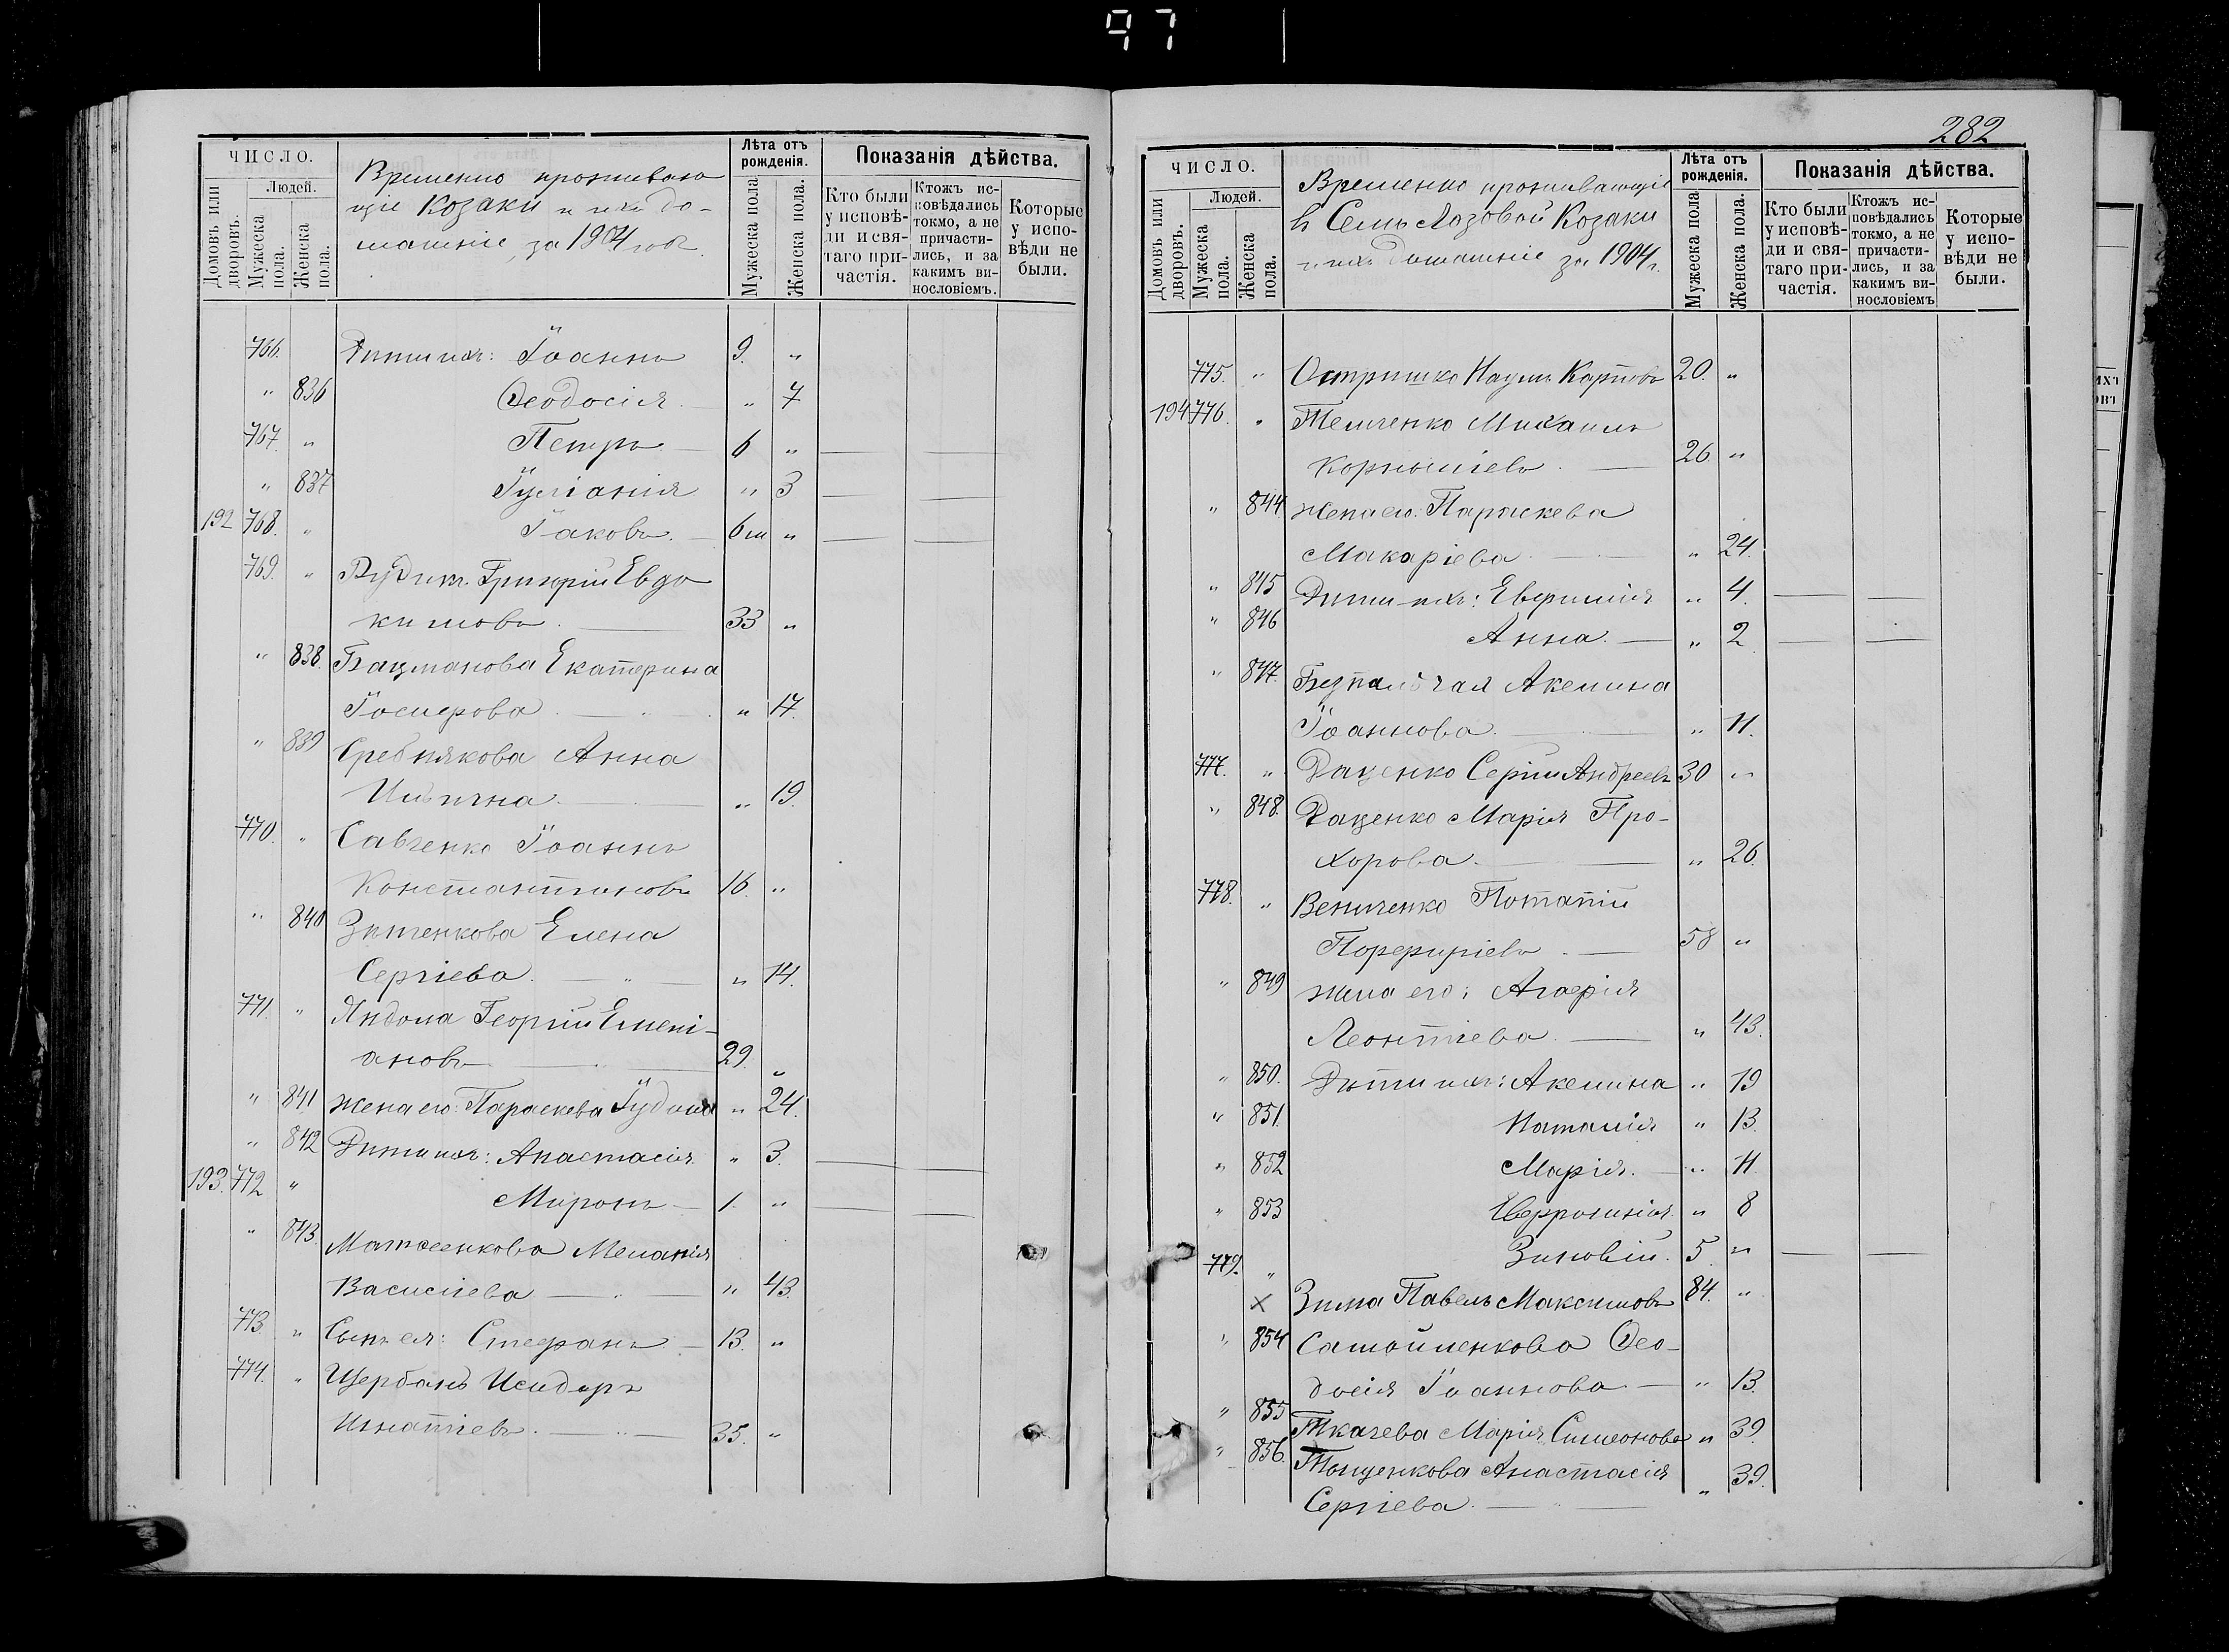 97
ЧИСЛО.
Людей.
Домовъ или дворовъ.
Мужеска пола.
Женска пола.
Временно проживаю
щіе Козаки и ихъ до-
машніе, за 1904 годъ
Лѣта отъ рожденія.
Мужеска пола
Женска пола.
Показанія дѣйства.
Кто были у исповѣ-ди и свя-таго при-частія.
Ктожъ ис-повѣдались токмо, а не причасти-лись, и за какимъ ви-нословіемъ.
Которые у испо-вѣди не были.
766. Дѣти ихъ: Іоаннъ 9. "
" 836 Ѳеодосія " 7
767. " Петръ 6 "
" 837 Іуліанія " 3
192 768. " Іаковъ. 6 м "
769. " Рудикъ Григорій Евдо
кимовъ. 33 "
" 838. Бацманова Екатерина
" 17.
" 839 Сребнякова Анна
Ильична " 19.
770. " Савченко Іоаннъ
Константиновъ 16. "
" 840 Зятенкова Елена
Сергіева. " 14.
771. " Яндола Георгій Емелі-
ановъ 29. "
" 841 жена его: Параскева " 24.
" 842 Дѣти ихъ: Анастасія. " 3.
193. 772 " Миронъ 1. "
" 843. Матвеенкова Меланія
Василіева " 43.
773. " Сынъ ея: Стефанъ 13. "
774. " Щербань Исидоръ
Игнатіевъ. 35. "
282
ЧИСЛО.
Людей.
Домовъ или дворовъ.
Мужеска пола.
Женска пола.
Временно проживающіе
въ Семъ Лозовой Козаки
и ихъ домашніе за 1904 г.
Лѣта отъ рожденія.
Мужеска пола
Женска пола.
Показанія дѣйства.
Кто были у исповѣ-ди и свя-таго при-частія.
Ктожъ ис-повѣдались токмо, а не причасти-лись, и за какимъ ви-нословіемъ
Которые у испо-вѣди не были.
775. " Остришко Наумъ Карповъ 20. "
194 776. " Темченко Михаилъ
Корниліевъ. 26. "
" 844. жена его: Параскева
Макаріева " 24.
" 845 Дѣти ихъ: Евфимія " 4.
" 846 Анна. " 2
" 847. Безпальчая Акелина
Іоаннова. " 11.
777. " Даценко Сергій Андреевъ 30 "
" 848. Даценко Марія Про-
хорова. " 26.
778. " Величенко Потапій
Порфиріевъ 58 "
" 849 жена его: Агафія
Леонтіева. " 43.
" 850. Дѣти ихъ: Акелина " 19
" 851. Наталія " 13.
" 852 Марія. " 11.
" 853 Евфросинія. " 8
779. " Зиновій. 5. "
× Зима Павелъ Максимовъ 84. "
" 854 Самойленкова Ѳео-
досія Іоаннова " 13.
" 855 Ткачева Марія Симеонова " 39.
" 856. Тонценкова Анастасія
Сергіева. " 39.